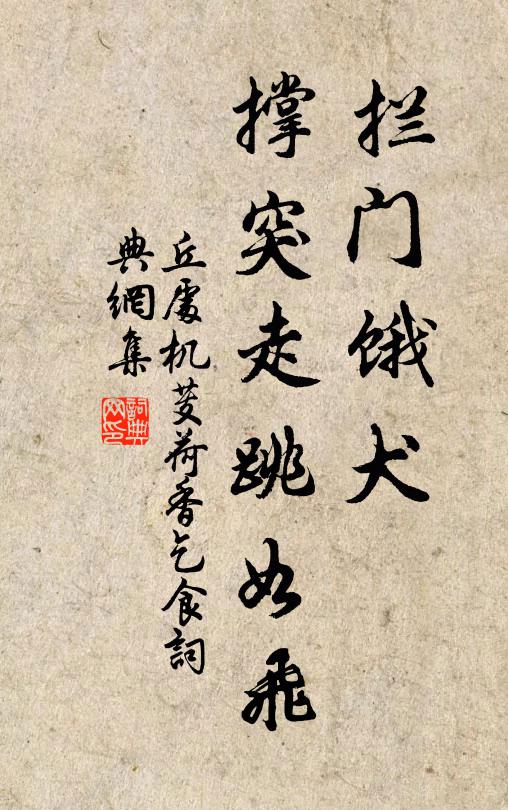 拦门饿犬
撑突走跳如飞
丘處机芰荷香乞食詞
典網集
詞典网印